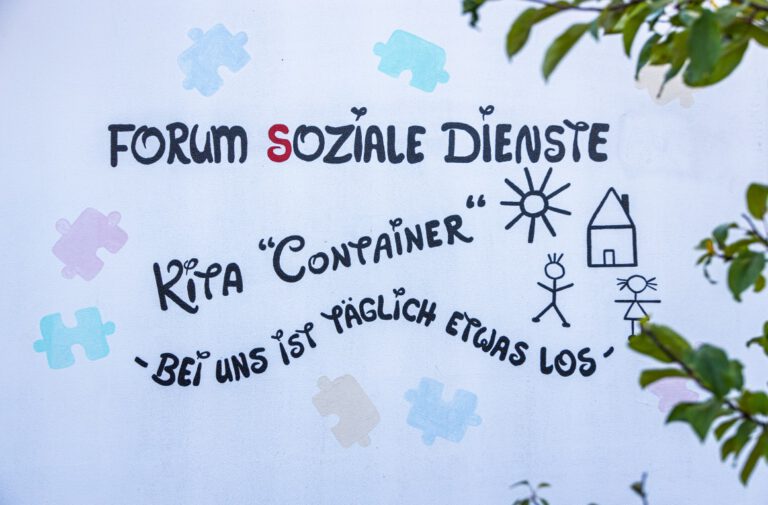 FORUM SOZIALE DIENSTE
KITA “CONTAINER“
-BEI UNS IST TÄGLICH ETWAS LOS-